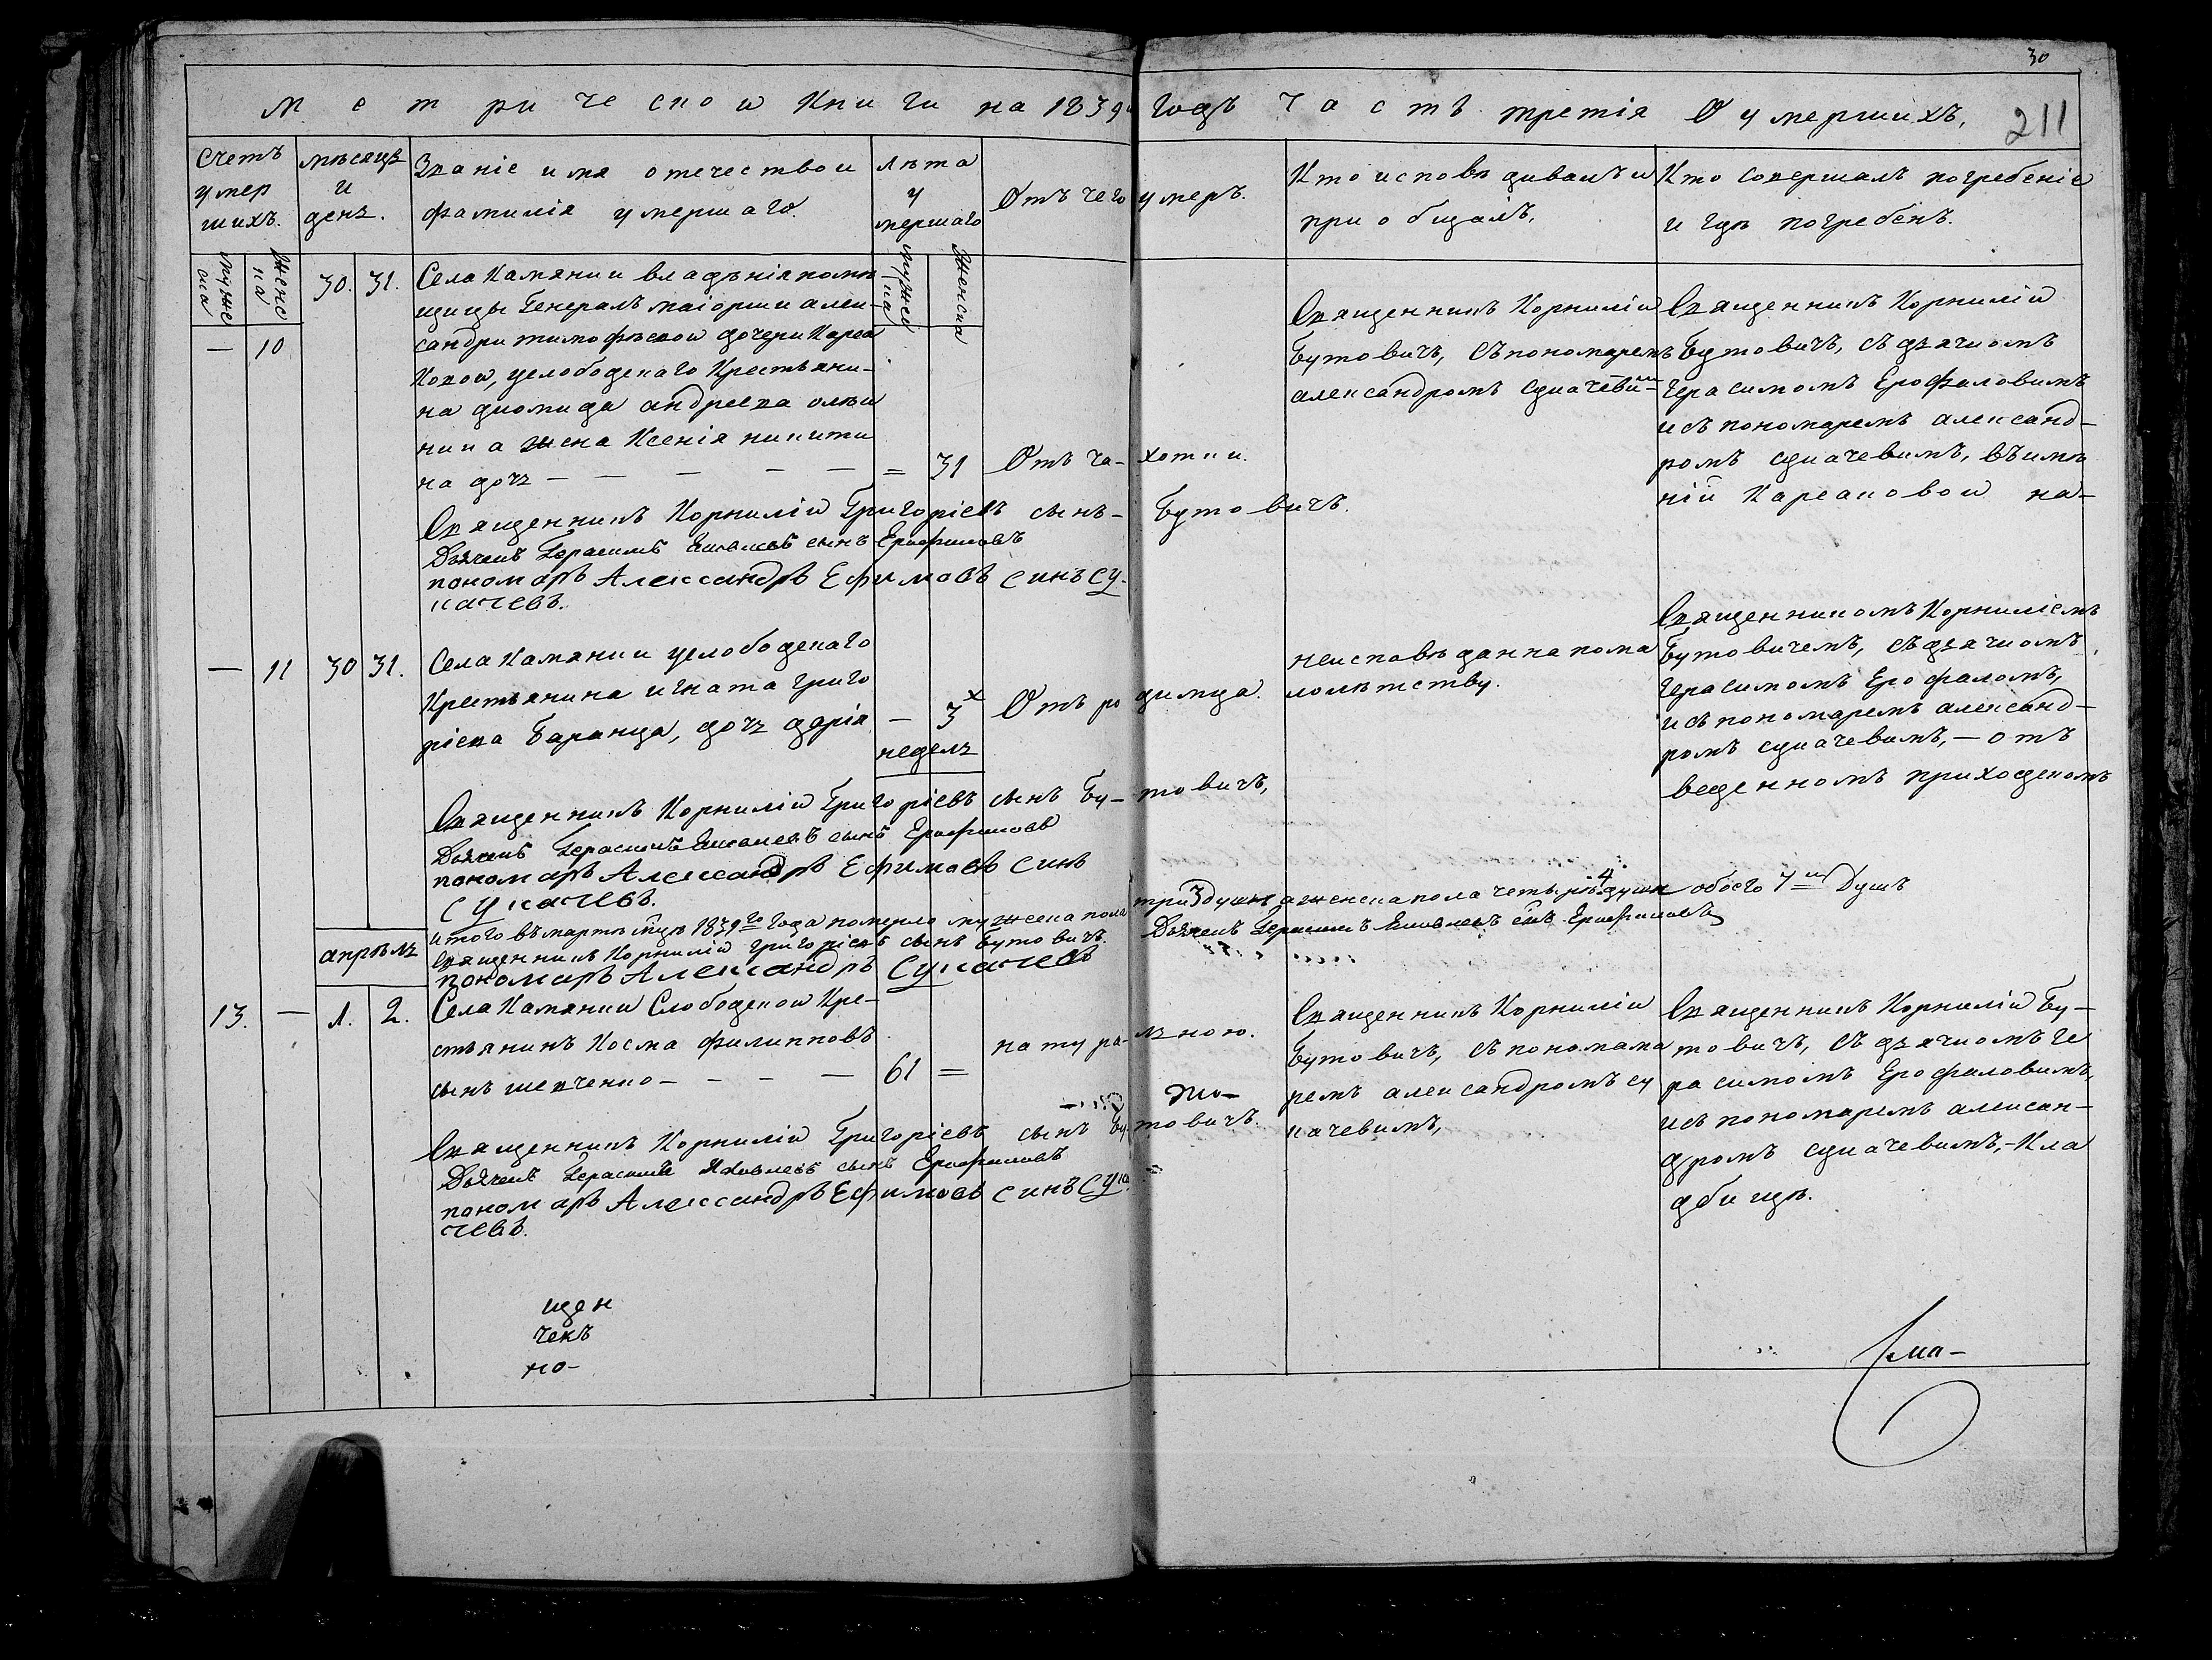 30
Метрической Книги на 1839й годъ Часть третія О умершихъ,
211
Счетъ умер шихъ.
мѣсяцъ и день.
Званіе имя отечество и фамилія умершаго.
лѣта умершаго
Отъ чего умеръ.
Кто исповѣдивалъ и приобщалъ.
Кто совершалъ погребеніе и гдѣ погребенъ.
мужеска
женска
мужеска
женска
— 10 30. 31.
Села Камянки владѣнія помѣ-
щицы Генералъ маіорши алек-
сандри тимофѣевой дочери Корса
ковой, услободскаго Крестьяни-
на диомида андреева
жена Ксенія никити
на дочь — — — — — = 31 Отъ ча-хотки.
Священникъ Корнилій
Бутовичъ, съ пономаремъ
александромъ сукачевим
Священникъ Корнилій
Бутовичъ, съ дьячкомъ
Герасимомъ Ерофаловимъ
и съ пономаремъ александ-
ромъ сукачевимъ, въ имѣ
ній Карсаковой на-
Священникъ Корнилій Григоріевъ сынъ - Бутовичъ.
Дьячекъ Герасимъ Яковлевъ сынъ Ерофаловъ
пономаръ Александръ Ефимовъ синъ Су-
качевъ.
— 11 30 31.
Села Камянки услободскаго
Крестьянина игната григо
ріева Баранца, дочь дарія — 3х недель Отъ родимца.
неисповѣданна по ма
лолѣтству.
Священникомъ Корниліемъ
Бутовичемъ, съ дьячкомъ
Герасимомъ Ерофаломъ,
и съ пономаремъ александ-
ромъ сукачевимъ, — отъ
веденномъ приходскомъ
Священникъ Корнилій Григоріевъ сынъ Бу-товичъ,
Дьячекъ Герасимъ Яковлевъ сынъ Ерофаловъ
пономаръ Александръ Ефимовъ синъ
Сукачевъ.
итого въ мартѣ мцѣ 1839го года померло мужеска пола три 3 души а женска пола четырѣ 4 души обоего 7м Душъ
Священникъ Корнилій Григоріевъ сынъ Бутовичъ. Дьячекъ Герасимъ Яковлевъ сынъ Ерофаловъ
пономаръ Александръ Сукачевъ
апрѣль
13. — 1. 2.
Села Камянки Слободской Кре-
стьянинъ Косма Филипповъ
сынъ шевченко - - - — 61 = натуральною.
Священникъ Корнилій
Бутовичъ, съ понома
ремъ александромъ су
качевимъ,
Священникъ Корнилій Бу-
товичъ, съ дьячкомъ Ге
расимомъ Ерофаловимъ,
и съ пономаремъ алексан-
дромъ сукачевимъ, - Кла
дбищѣ.
Священникъ Корнилій Григоріевъ сынъ Бу-товичъ.
Дьячекъ Герасимъ Яковлевъ сынъ Ерофаловъ
пономаръ Александръ Ефимовъ синъ Сука
чевъ.
щен
чекъ
но-